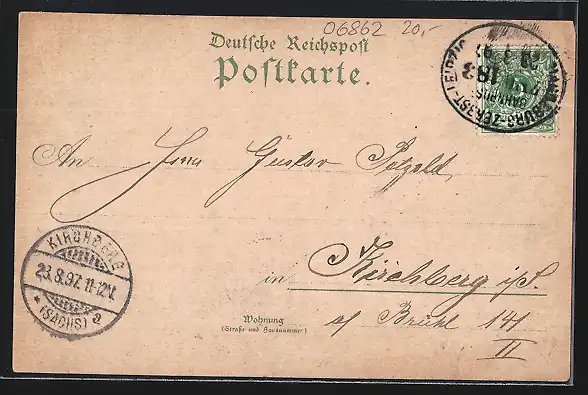 06862 20,-
Deutsche Reichspost
Postkarte.
MAGDEBURG-ZERBST-LEIPZIG
BAHNPOST
183
An Herrn Gustav Petzold
in Kirchberg i/S.
a/ Brühl 141
II
Wohnung
(Straße und Hausnummer)
KIRCHBERG
23.8.97. 11-12V.
* (SACHS) a